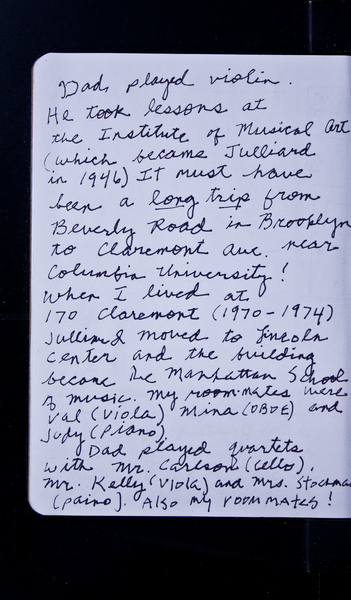 Dad, played violin.
He took lessons at
the Institute of Musical Art
(which became Julliard
in 1946) It must have
been a long trip from
Beverly Road in Brooklyn
to Claremont Ave. near
Columbia University!
When I lived at
170 Claremont (1970-1974)
Julliard moved to Lincoln
Center and the building
became The Manhattan School
of music. My roommates were
Val (Viola) Mina (OBOE) and
Judy (Piano)
Dad played quartets
with Mr. Carlson (cello),
Mr. Kelly (Viola) and Mrs. Stockman
(paino). Also my roommates!